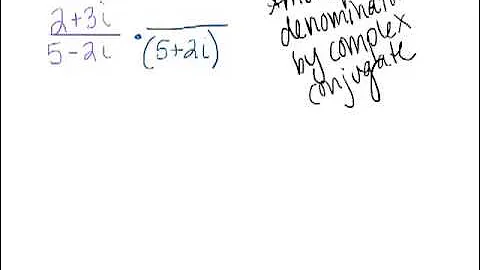 2+3i
5-2i • (5+2i)
denominator
by complex
conjugate